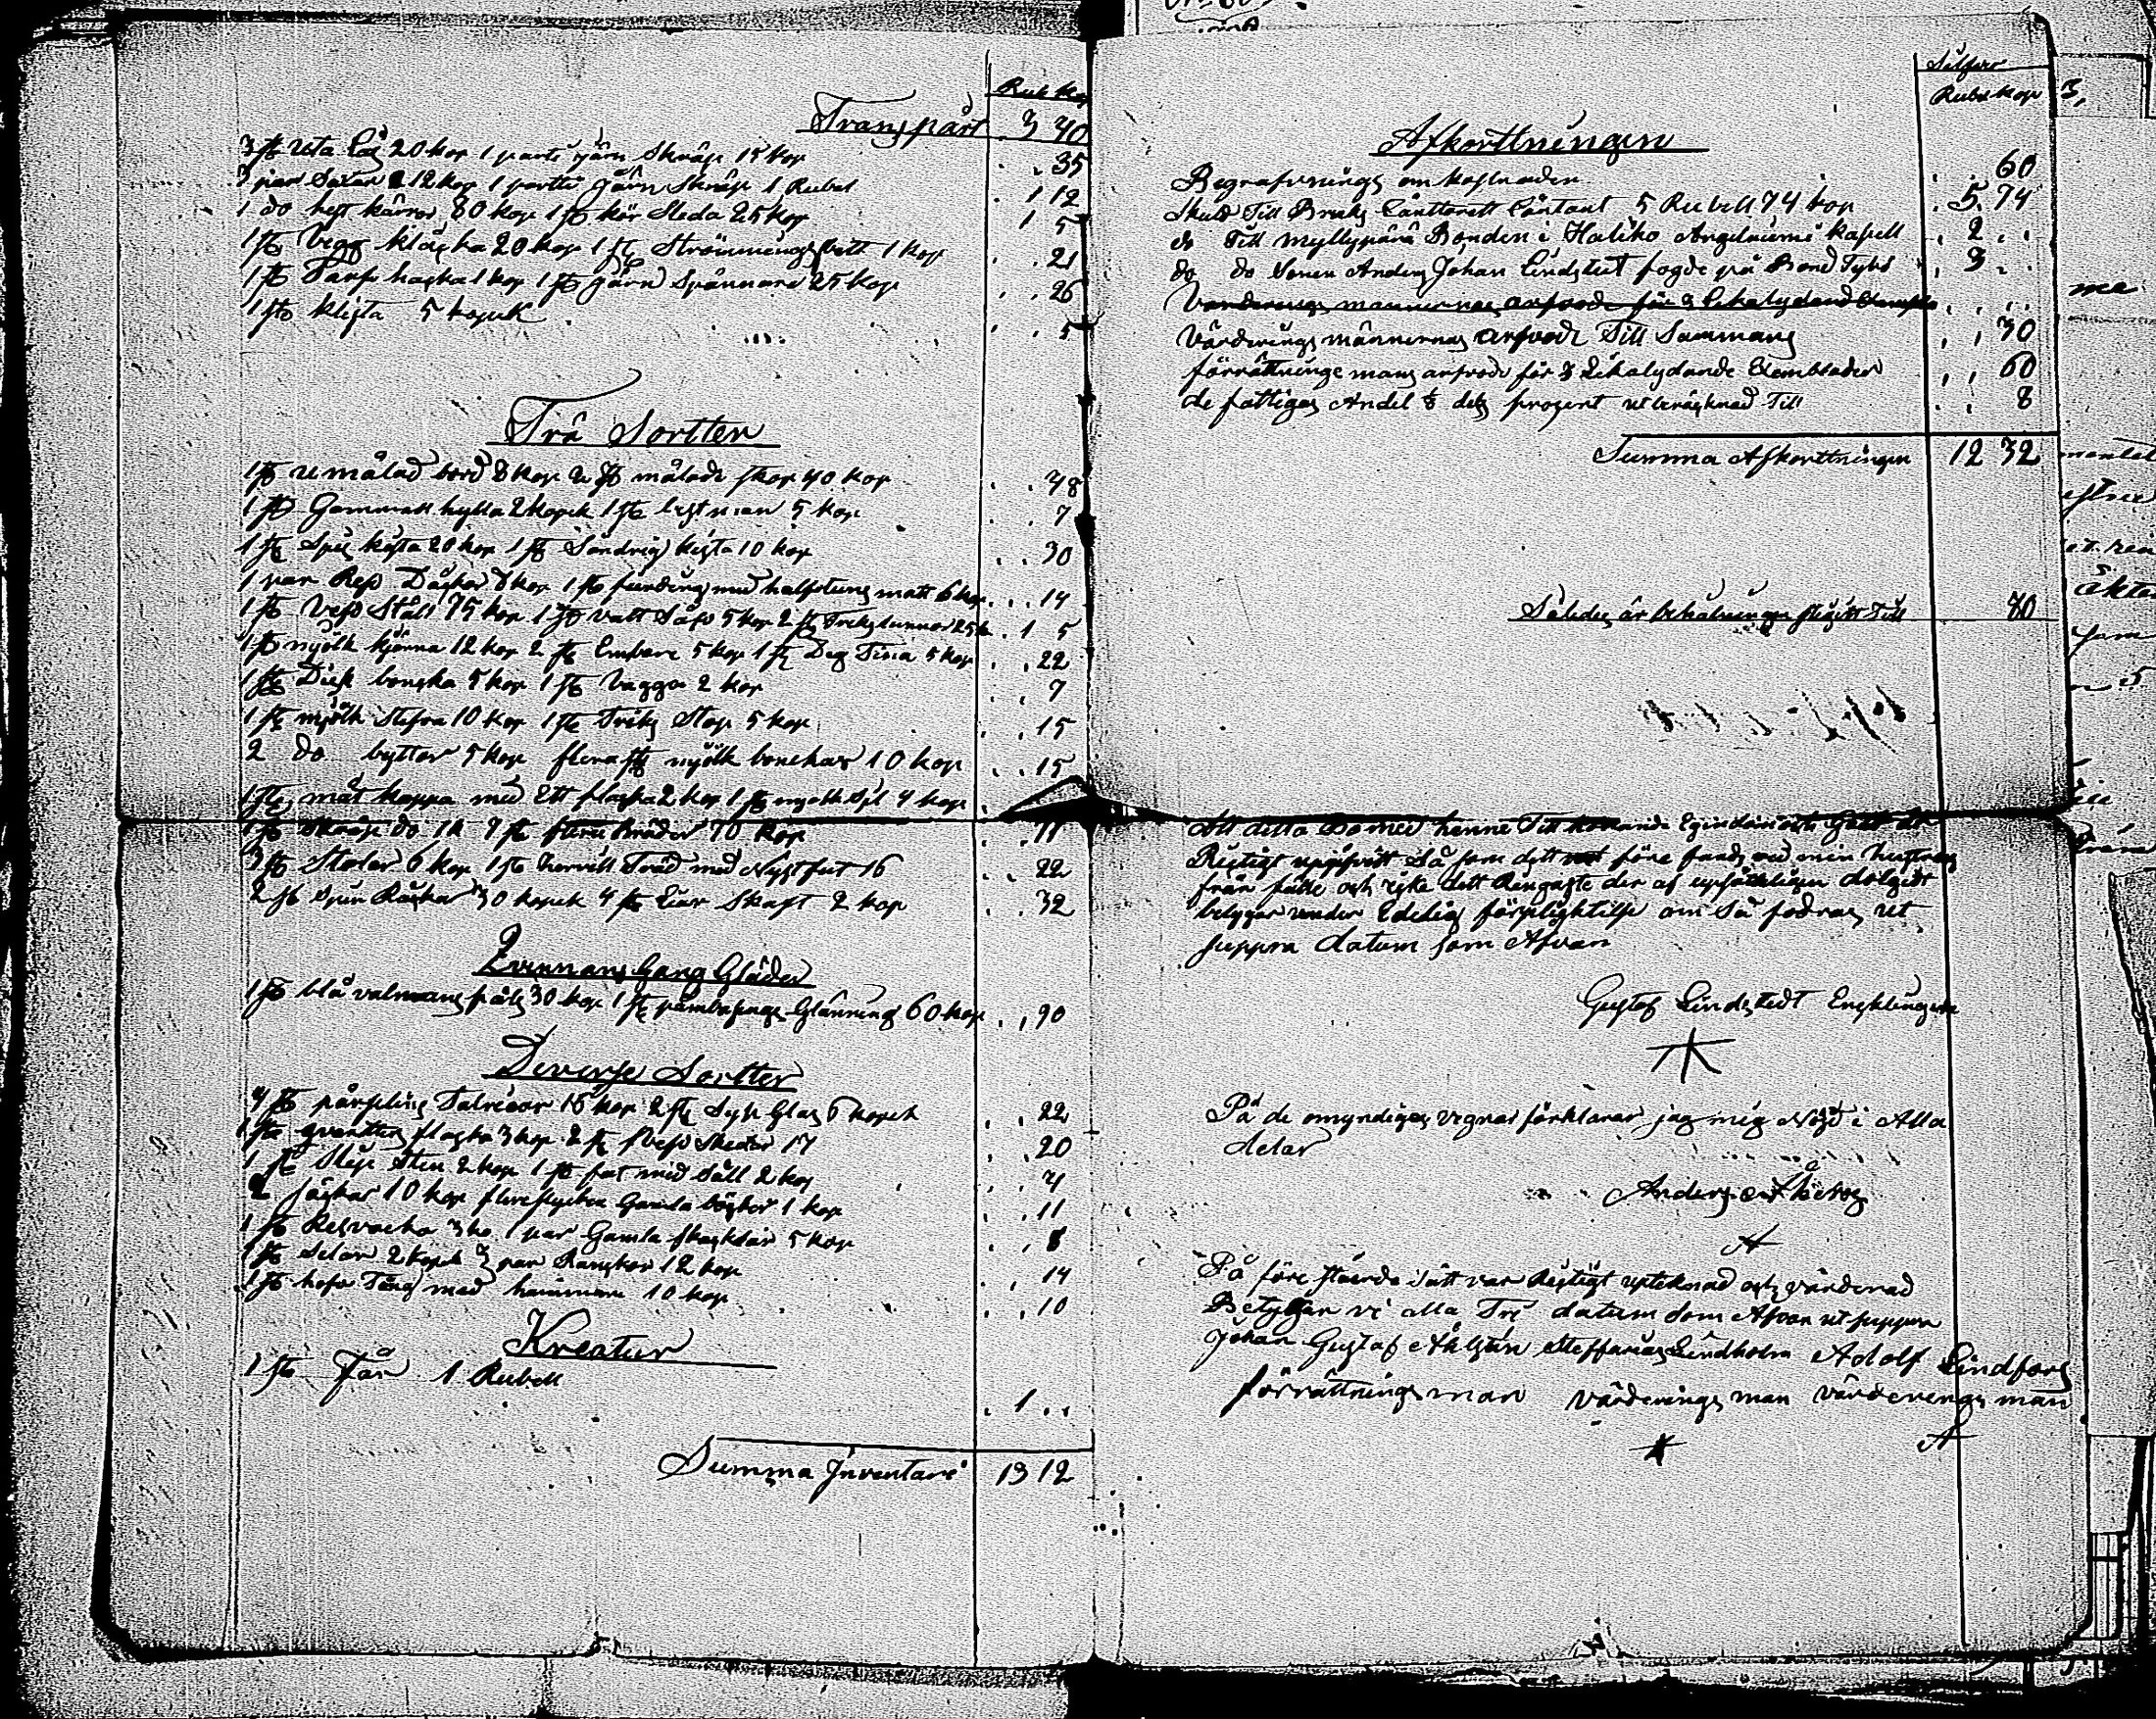 Rub Kop
Transpårt 3 40
3 st Uta låg 20 kop 1 parti järn Skräp 15 kop . . 35
3 par Saxar 12 kop 1 partti järn Skräp 1 Rubel . 1 12
1 do hest kärror 80 kop 1 st kör Sleda 25 kop 1 5
1 st Vegg klåcka 20 kop 1 st Strömmings 1 kop . . 21
1 st Tarfs hacka 1 kop 1 st järn Spännare 25 kop . . 26
1 st klifta 5 kopek . . 5
Trä Sortter
1 st umålad bord 8 kop 2 st målade skop 40 kop . . 48
1 st Gammalt hylla 2 kopek 1 st 5 kop . . 7
1 st Spis kista 20 kop 1 st Söndrig kista 10 kop . . 30
1 par Ref 8 kop 1 st med halfstung matt 6 kop . . 14
1 st Vefs Ståll 75 kop 1 st vatt Såfs 5 kop 2 st Trikstunnor 25 k . 1 5
1 st mjölk kjörna 12 kop 2 st Embare 5 kop 1 st Deg Tina 5 kop . . 22
1 st Disk bonska 5 kop 1 st Vagga 2 kop . . 7
1 st mjölk Stefva 10 kop 1 st Triks Stop 5 kop . . 15
2 do byttor 5 kop flera st mjölk bonckar 10 kop . . 15
1 st mat koppa med Ett flaska 2 kop 1 st mjölk 4 kop
1 st Skräp do 1 k 9 st flere bräder 10 kop . . 11
3 st Stolar 6 kop 1 st Tråd med Nystfut 16 . . 22
2 st Spin Råckar 30 kopek 4 st Liar Skaft 2 kop . . 32
Qvinnans Gang Gläder
1 st blå valmans päls 30 kop 1 st Glänning 60 kop . . 90
Diverse Sortter
4 st pårsling Talricar 16 kop 2 st Syp Glas 6 kopek . . 22
1 st flaska 3 kop 2 st skedar 17 . . 20
1 st Slip Sten 2 kop 1 st fat med Såll 2 kop . . 4
2 säckar 10 kop flerestycken Gamla böcker 1 kop . . 11
1 st 3 ko. 1 par Gamla skacklar 5 kop . . 8
1 st Selar 2 kopek 3 par Ranckor 12 kop . . 14
1 st hofv Tång med hammare 10 kop . . 10
Kreatur
1 st Får 1 Rubell . 1 . .
Summa Inventarė 13 12
Silfver
Rube kop
Afkorttningen
Begrafvnings omkostnaden . . 60
Skuld Till Bruks Cånttorett Cåntant 5 Rubell 74 kop . 5. 74
do Till Myllypärä Bonden i Haliko Angelniemi kapell . 2 . .
do do Sonen Anders Johan Lindstet fogde på Bond Tykö . 3 . .
Varderings mannernas arfvode för 3 Likalydand Exempla . . . .
Värderings männernas arfvode Till Sammans . . 30
förrättninge mans arfvode för 3 Likalydande Exemblader . . 60
de fattigas Andel 1/8 dels prosent ut beräcknad Till . . 8
Summa Afkorttningen 12 32
Således är behålningen stigit Till 80
Att detta Bo med henne Till hörande Egindom är
Riktigt uppgifvitt Så som dett förefans vid min hustrus
från fälle och icke dett Ringaste der af upsåteligen dolgitt
betygar under Edelig förpligtilse om Så fodras ut
suppra datum som Afvan
Gustaf Lindstedt Encklingen
På de omyndigas vegnar förklarar jag mig Nöjd i Alla
delar
Anders Åberg
På före stående Sätt var Rigtigt uptcknad och värderad
Betygar vi alla Tre datum som Afvan ut suppra
Johan Gustaf Ahlstén Steffanus Lindholm Adolf Lindfors
förrättnings man värderings man värderengs man